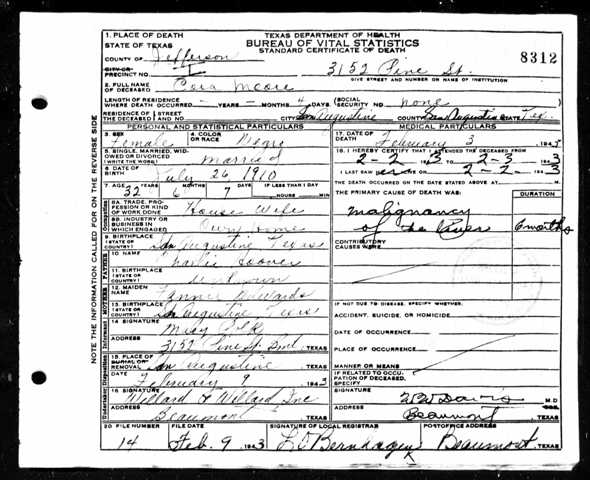 TEXAS DEPARTMENT OF HEALTH
BUREAU OF VITAL STATISTICS
STANDARD CERTIFICATE OF DEATH
8312
1. PLACE OF DEATH
STATE OF TEXAS
COUNTY OF Jefferson
CITY OR PRECINCT NO. I
3152 Pine St.
GIVE STREET AND NUMBER OR NAME OF INSTITUTION
2. FULL NAME OF DECEASED Cora Moore
LENGTH OF RESIDENCE WHERE DEATH OCCURRED - YEARS - MONTHS 4 DAYS (SOCIAL SECURITY NO. none
RESIDENCE OF THE DECEASED (STREET AND NO. San Augustine COUNTY San Augustine STATE Tex
PERSONAL AND STATISTICAL PARTICULARS
3. SEX Female
4. COLOR OR RACE Negro
5. SINGLE, MARRIED, WIDOWED OR DIVORCED (WRITE THE WORD) Married
6. DATE OF BIRTH July 26 1910
7. AGE 32 YEARS 6 MONTHS 7 DAYS IF LESS THAN 1 DAY HOURS MIN
8A. TRADE, PROFESSION OR KIND OF WORK DONE House Wife
8B. INDUSTRY OR BUSINESS IN WHICH ENGAGED Own Home
9. BIRTHPLACE (STATE OR COUNTRY) San Augustine Texas
10. NAME Charlie Hoover
11. BIRTHPLACE (STATE OR COUNTRY) unknown
12. MAIDEN NAME Edwards
13. BIRTHPLACE (STATE OR COUNTRY) San Augustine Texas
14. SIGNATURE
ADDRESS 3152 Pine St. Bmt TEXAS
15. PLACE OF BURIAL OR REMOVAL San Augustine TEXAS
DATE February 9 1943
16. SIGNATURE Willard & Willard Inc
ADDRESS Beaumont TEXAS
MEDICAL PARTICULARS
17. DATE OF DEATH February 3 1943
18. I HEREBY CERTIFY THAT I ATTENDED THE DECEASED FROM
2-2- 1943 TO 2-3- 1943
I LAST SAW her ALIVE ON 2-2- 1943
THE DEATH OCCURRED ON THE DATE STATED ABOVE AT M.
THE PRIMARY CAUSE OF DEATH WAS: DURATION
malignancy
of the liver 6 months
CONTRIBUTORY CAUSES WERE
IF NOT DUE TO DISEASE, SPECIFY WHETHER
ACCIDENT, SUICIDE, OR HOMICIDE
DATE OF OCCURRENCE
PLACE OF OCCURRENCE
MANNER OR MEANS
IF RELATED TO OCCUPATION OF DECEASED, SPECIFY
SIGNATURE W W Davis M.D.
Beaumont TEXAS
20 FILE NUMBER 14
FILE DATE Feb. 9 1943
SIGNATURE OF LOCAL REGISTRAR L O Bernhagen
POSTOFFICE ADDRESS Beaumont, TEXAS
NOTE THE INFORMATION CALLED FOR ON THE REVERSE SIDE